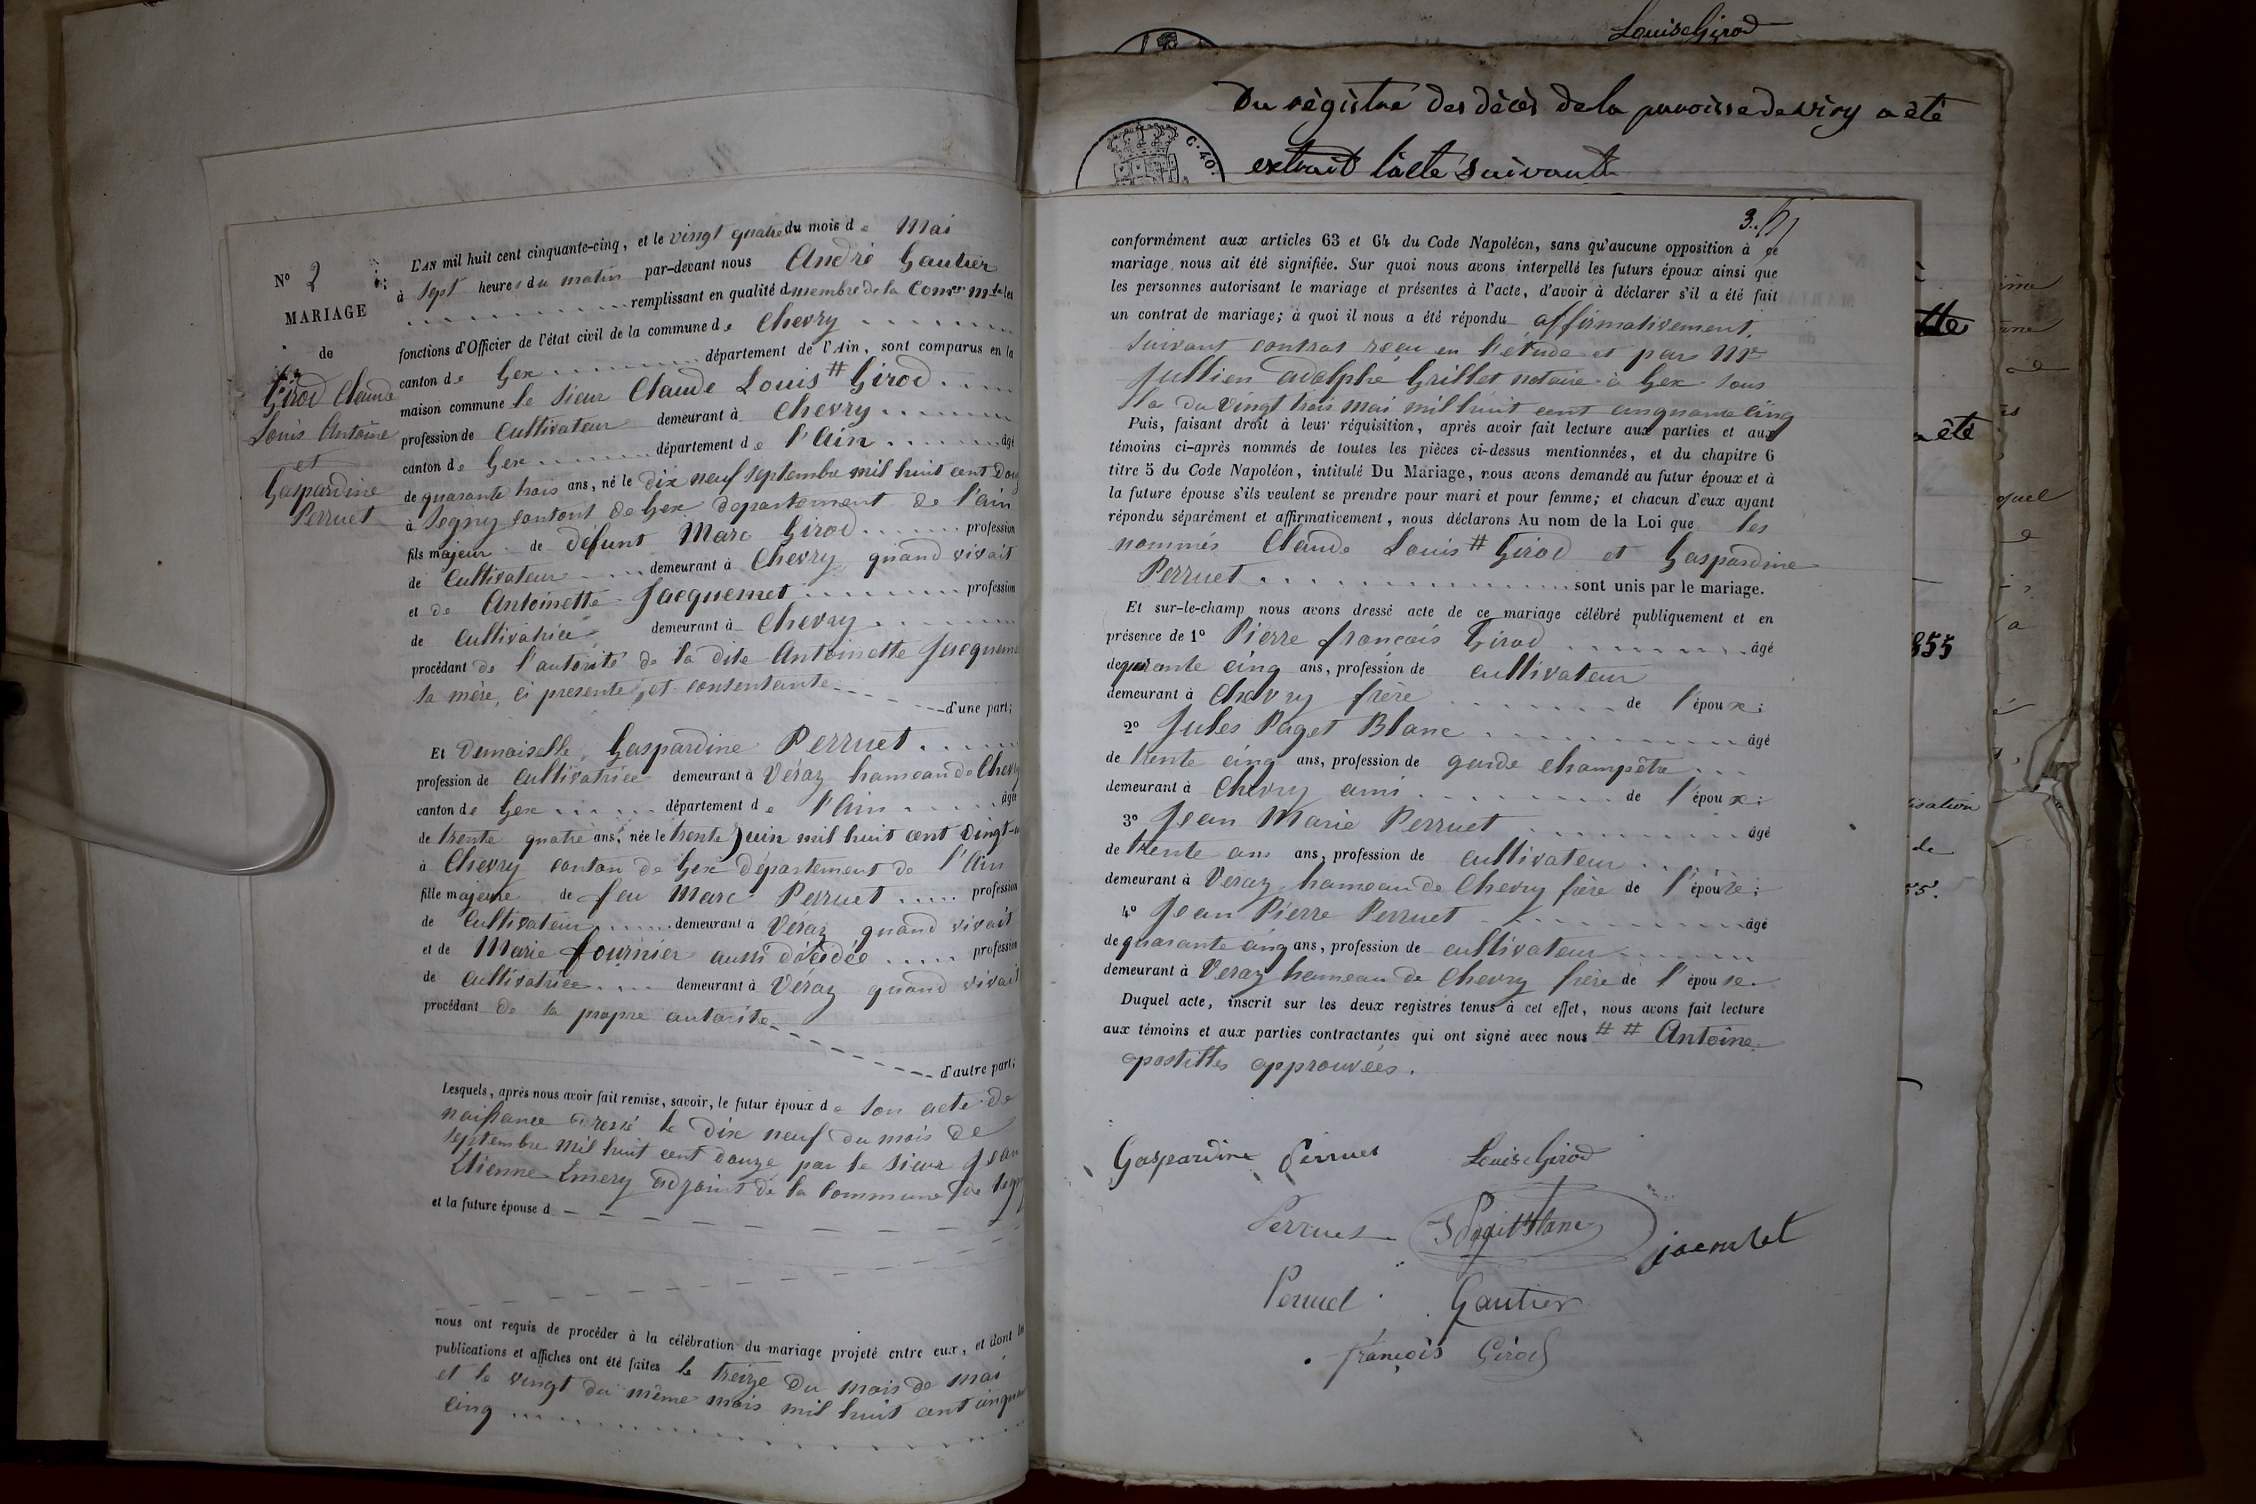 Louis Girod
Du règistre des dècès de la paroisse de viry a été
extrait l'acte suivant
C. 40.
N° 2
MARIAGE
de
Girod Claude
Louis Antoine
et
Gaspardine
Perruet
L'AN mil huit cent cinquante-cinq, et le vingt quatre du mois de Mai
à sept heures du matin par-devant nous André Gautier
remplissant en qualité de membre de la Comon Mle les
fonctions d'Officier de l'état civil de la commune de Chevry
canton de Gex département de l'Ain, sont comparus en la
maison commune le sieur Claude Louis # Girod
profession de Cultivateur demeurant à Chevry
canton de Gex département de l'Ain âgé
de quarante trois ans, né le dix neuf septembre mil huit cent douz
à Segny canton de Gex département de l'ain
fils majeur de défunt Marc Girod profession
de Cultivateur demeurant à Chevry quand vivait
et de Antoinette Jacquemet profession
de Cultivatrice demeurant à Chevry
procédant de l'autorité de la dite Antoinette Jacqueme
sa mère, ci présente, et consentante
d'une part;
Et Demoiselle, Gaspardine Perruet
profession de cultivatrice demeurant à Véraz hameau de Chevry
canton de Gex département de l'Ain âgée
de trente quatre ans, née le trente Juin mil huit cent vingt-u
à Chevry canton de Gex département de l'Ain
fille majeure de feu Marc Perruet profession
de Cultivateur demeurant à Véraz quand vivait
et de Marie fournier aussi décédée profession
de cultivatrice demeurant à Véraz quand vivait
procédant de sa propre autorité
d'autre part;
Lesquels, après nous avoir fait remise, savoir, le futur époux de son acte de
naissance dressé le dix neuf du mois de
septembre mil huit cent douze par le sieur Jean
Etienne Emery adjoint de la Commune de Segny
et la future épouse d
nous ont requis de procéder à la célébration du mariage projeté entre eux, et dont les
publications et affiches ont été faites le treize du mois de mai
et le vingt du même mois mil huit cent cinquan
cinq
3.
conformément aux articles 63 et 64 du Code Napoléon, sans qu'aucune opposition à ce
mariage nous ait été signifiée. Sur quoi nous avons interpellé les futurs époux ainsi que
les personnes autorisant le mariage et présentes à l'acte, d'avoir à déclarer s'il a été fait
un contrat de mariage; à quoi il nous a été répondu affirmativement,
suivant contrat reçu en l'étude et par Me
Jullien Adolphe Grillet notaire à Gex sous
la du vingt trois mai mil huit cent cinquante cinq
Puis, faisant droit à leur réquisition, après avoir fait lecture aux parties et aux
témoins ci-après nommés de toutes les pièces ci-dessus mentionnées, et du chapitre 6
titre 5 du Code Napoléon, intitulé Du Mariage, nous avons demandé au futur époux et à
la future épouse s'ils veulent se prendre pour mari et pour femme; et chacun d'eux ayant
répondu séparément et affirmativement, nous déclarons Au nom de la Loi que les
nommés Claude Louis # Girod et Gaspardine
Perruet sont unis par le mariage.
Et sur-le-champ nous avons dressé acte de ce mariage célébré publiquement et en
présence de 1° Pierre françois Girod âgé
de quarante cinq ans, profession de cultivateur
demeurant à Chevry frère de l'époux;
2° Jules Paget Blanc âgé
de trente cinq ans, profession de garde champêtre
demeurant à Chevry ami de l'époux;
3° Jean Marie Perruet âgé
de trente ans ans, profession de cultivateur
demeurant à Veraz hameau de Chevry frère de l'épouse;
4° Jean Pierre Perruet âgé
de quarante cinq ans, profession de cultivateur
demeurant à Veraz hameau de Chevry frère de l'épouse.
Duquel acte, inscrit sur les deux registres tenus à cet effet, nous avons fait lecture
aux témoins et aux parties contractantes qui ont signé avec nous # # Antoine
apostilles approuvées.
Gaspardine Perruet Louis Girod
Perruet J Paget Blanc jacemet
Perruet Gautier
françois Girod
été
855
quel
de
55.